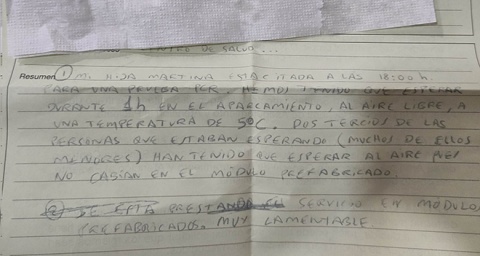 DE SALUD...
Resumen ① MI HIJA MARTINA ESTÁ CITADA A LAS 18:00 h.
PARA UNA PRUEBA PCR, HEMOS TENIDO QUE ESPERAR
DURANTE 1h EN EL APARCAMIENTO, AL AIRE LIBRE, A
UNA TEMPERATURA DE 5ºC. DOS TERCIOS DE LAS
PERSONAS QUE ESTABAN ESPERANDO (MUCHOS DE ELLOS
MENORES) HAN TENIDO QUE ESPERAR AL AIRE PUES
NO CABÍAN EN EL MÓDULO PREFABRICADO.
② SE ESTÁ PRESTANDO EL SERVICIO EN MÓDULOS
PREFABRICADOS. MUY LAMENTABLE